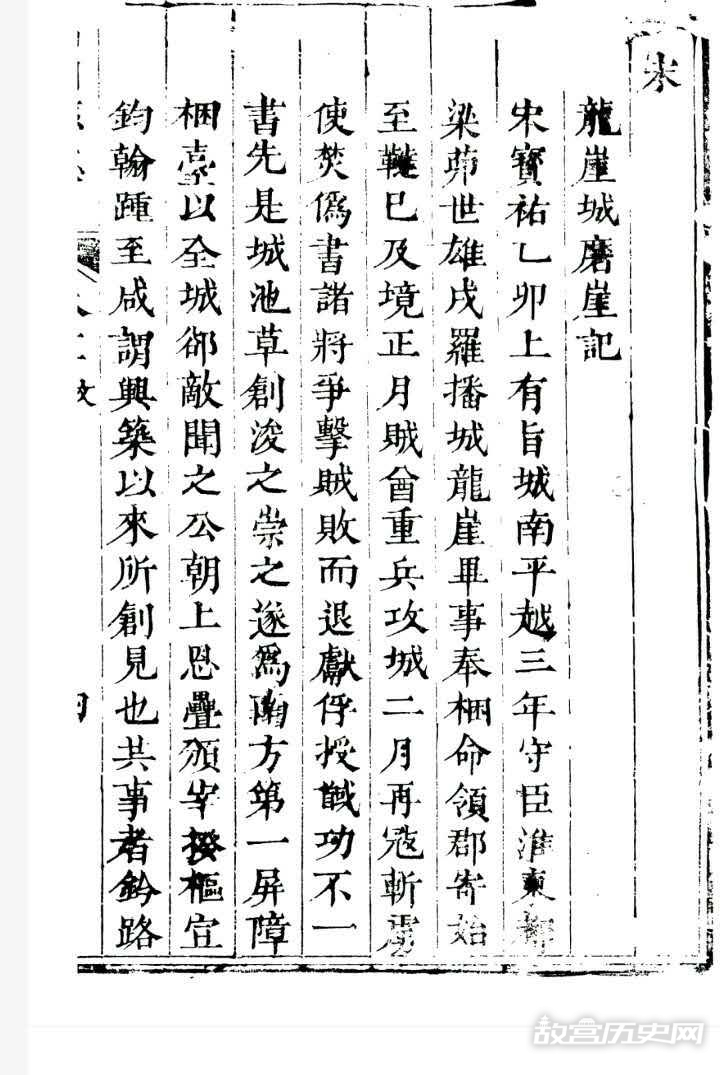 宋
龍崖城磨崖記
宋寳祐乙卯上有旨城南平越三年守臣淮東
梁茆世雄戍羅播城龍崖畢事奉梱命領郡寄始
至韃已及境正月賊酋重兵攻城二月再冦斬虜
使焚僞書諸將爭擊賊敗而退獻俘授馘功不一
書先是城池草創浚之崇之遂爲南方第一屏障
梱臺以全城郤敵聞之公朝上恩疊頒宰揆樞宣
鈞翰踵至咸謂興築以來所創見也共事者鈐路
四
故宫历史网